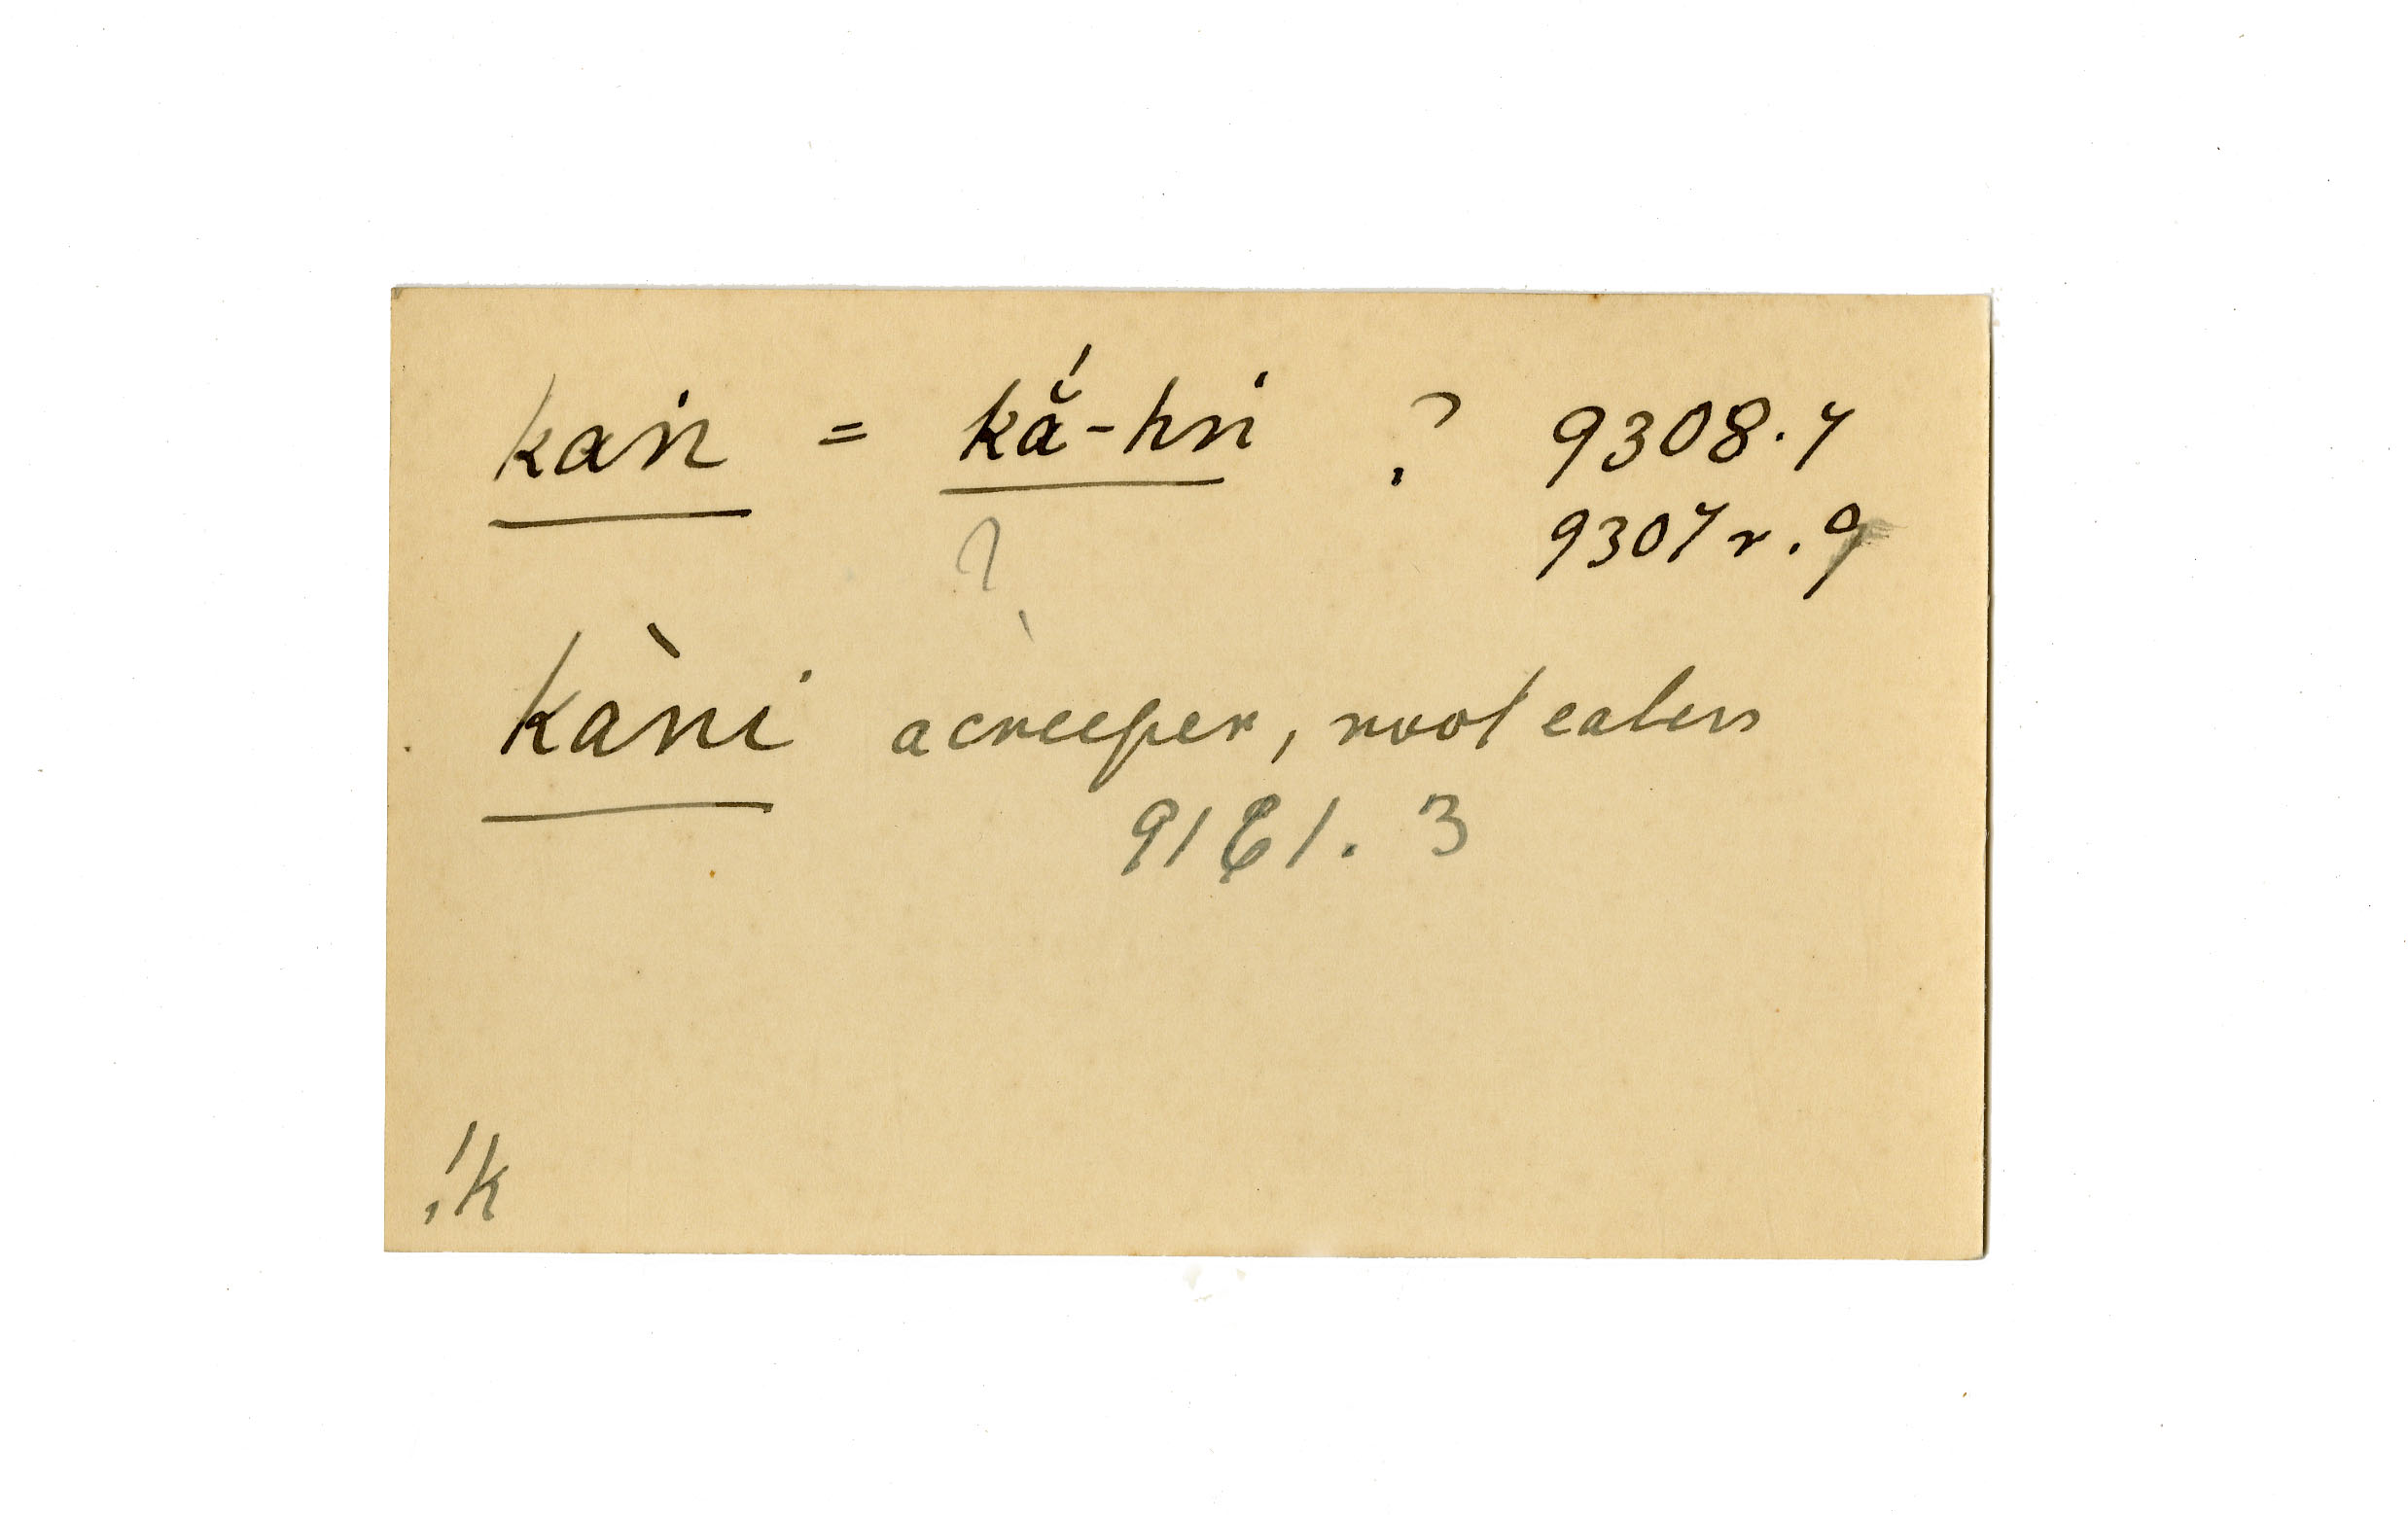 kaṅ = kắ-hni ? 9308.7
9307 r. 9
?
kàni a creeper, root eaten
9161. 3
!k